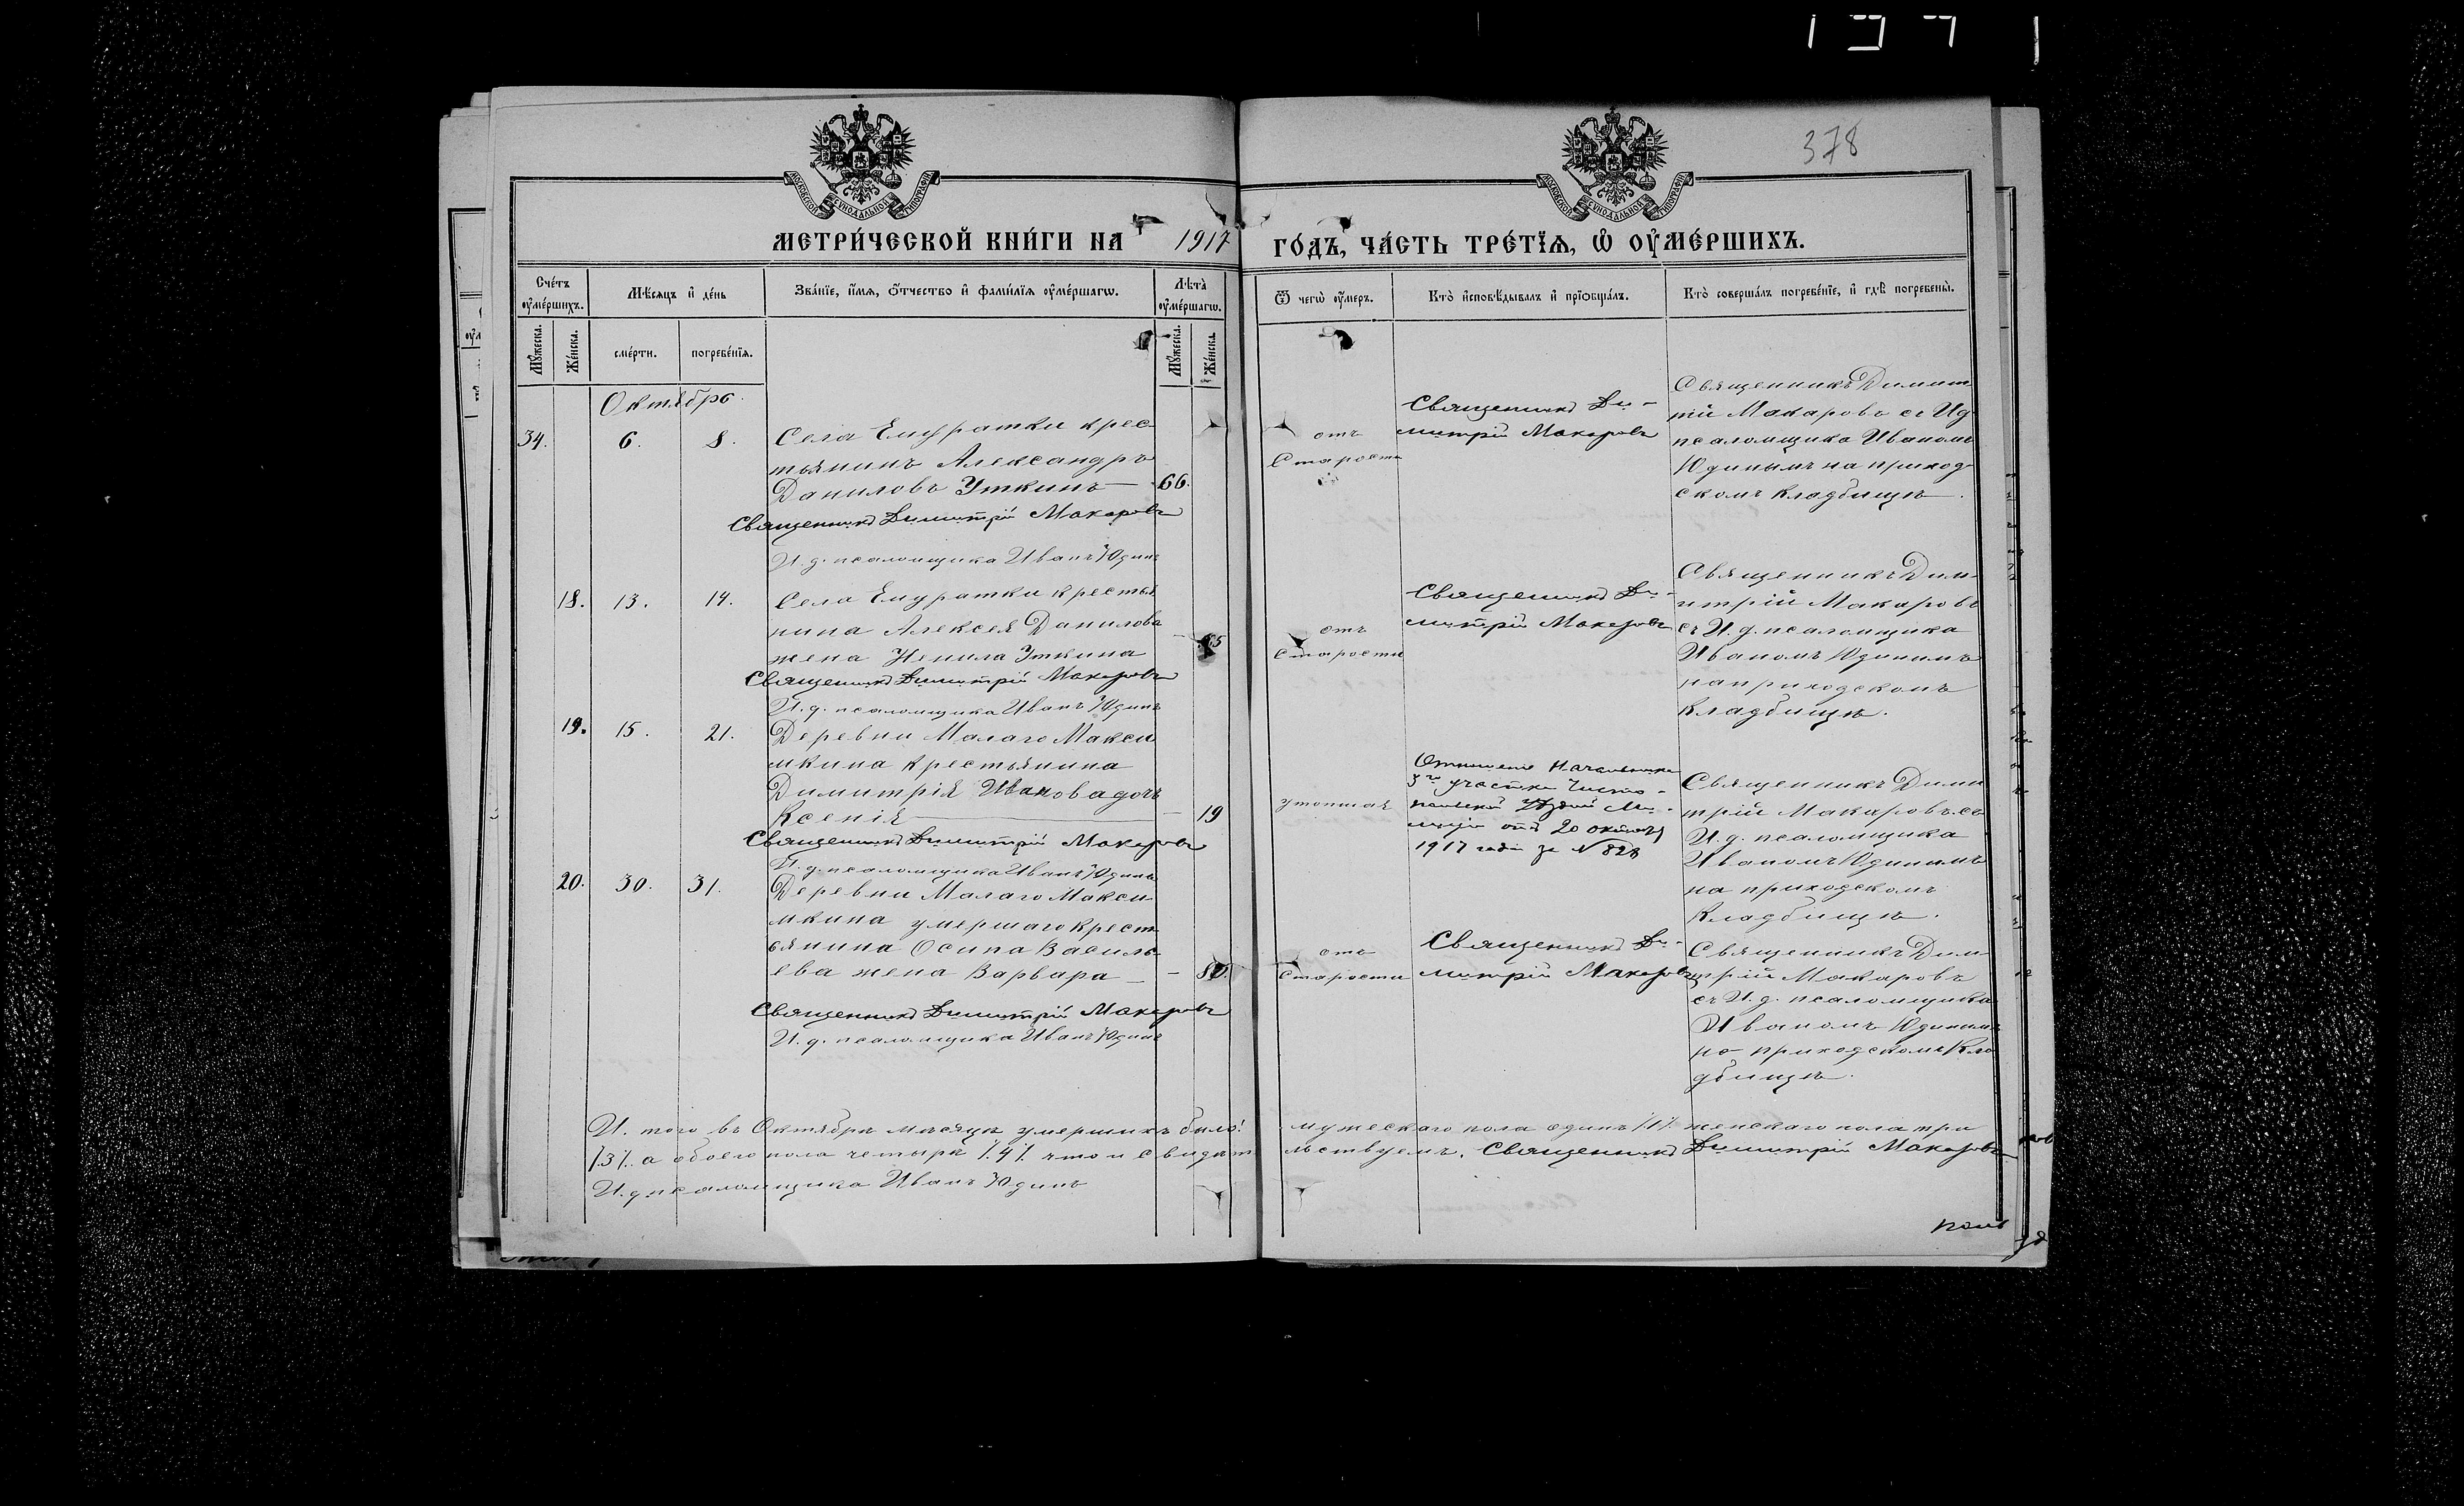 378
МОСКОВСКОЙ СѴНОДАЛЬНОЙ ТИПОГРАФІИ
МОСКОВСКОЙ СѴНОДАЛЬНОЙ ТИПОГРАФІИ
МЕТРИ́ЧЕСКОЙ КНИ́ГИ НА 1917 ГО́ДЪ, ЧА́СТЬ ТРЕ́ТЇѦ, Ѡ҆ ОУ҆МЕ́РШИХЪ.
Сче́тъ оу҆ме́ршихъ.
Мѣ́сѧцъ и҆ де́нь
Зва́нїе, и҆́мѧ, ѻ҆́тчество и҆ фамилїѧ оу҆ме́ршагѡ.
Лѣ́та̀ оу҆ме́ршагѡ.
Ѿ чегѡ̀ оу҆́меръ.
Кто̀ и҆сповѣ́дывалъ и҆ прїѡбща́лъ.
Кто̀ соверша́лъ погребе́нїе, и҆ гдѣ̀ погребены̀.
Мꙋ́жеска.
Же́нска.
сме́рти.
погребе́нїѧ.
Мꙋ́жеска.
Же́нска.
Октября.
34. 6. 8. Села Емуратки крес-
тьянинъ Александръ
Даниловъ Уткинъ — 66.
Священникъ Димитрій Макаровъ
И. д. псаломщика Иванъ Юдинъ
отъ
старости
Священникъ Ди-
митрій Макаровъ
Священникъ Димит-
рій Макаровъ съ И.д.
псаломщика Иваномъ
Юдинымъ на приход-
скомъ кладбищѣ.
18. 13. 14. Села Емуратки крестья
нина Алексея Данилова
жена Ненила Уткина
Священникъ Димитрій Макаровъ
И. д. псаломщика Иванъ Юдинъ
отъ
старости
Священникъ Ди-
митрій Макаровъ
Священникъ Дим-
итрій Макаровъ
съ И. д. псаломщика
Иваномъ Юдинымъ
на приходскомъ
кладбищѣ.
19. 15. 21. Деревни Малаго Макси
мкина крестьянина
Димитрія Иванова дочь
Ксенія — 19
Священникъ Димитрій Макаровъ
И. д. псаломщика Иванъ Юдинъ
утопшая
Отношеніе Начальника
3го участка Чисто-
польской Уѣздной Ми-
лиціи отъ 20 октября
1917 года за № 828
Священникъ Дими
трій Макаровъ съ
И. д. псаломщика
Иваномъ Юдинымъ
на приходскомъ
кладбищѣ.
20. 30. 31. Деревни Малаго Макси
мкина умершаго крест-
ьянина Осипа Василь-
ева жена Варвара —
Священникъ Димитрій Макаровъ
И. д. псаломщика Иванъ Юдинъ
отъ
старости
Священникъ Ди-
митрій Макаровъ
Священникъ Дим-
итрій Макаровъ
съ И. д. псаломщика
Иваномъ Юдинымъ
на приходскомъ кла
дбищѣ.
И. того въ Октябрѣ мѣсяцѣ умершихъ было: мужескаго пола одинъ /1/. женскаго пола три
/3/. а обоего пола четыре /4/. что и свидѣте льствуемъ. Священникъ Димитрій Макаровъ
И. д. псаломщика Иванъ Юдинъ